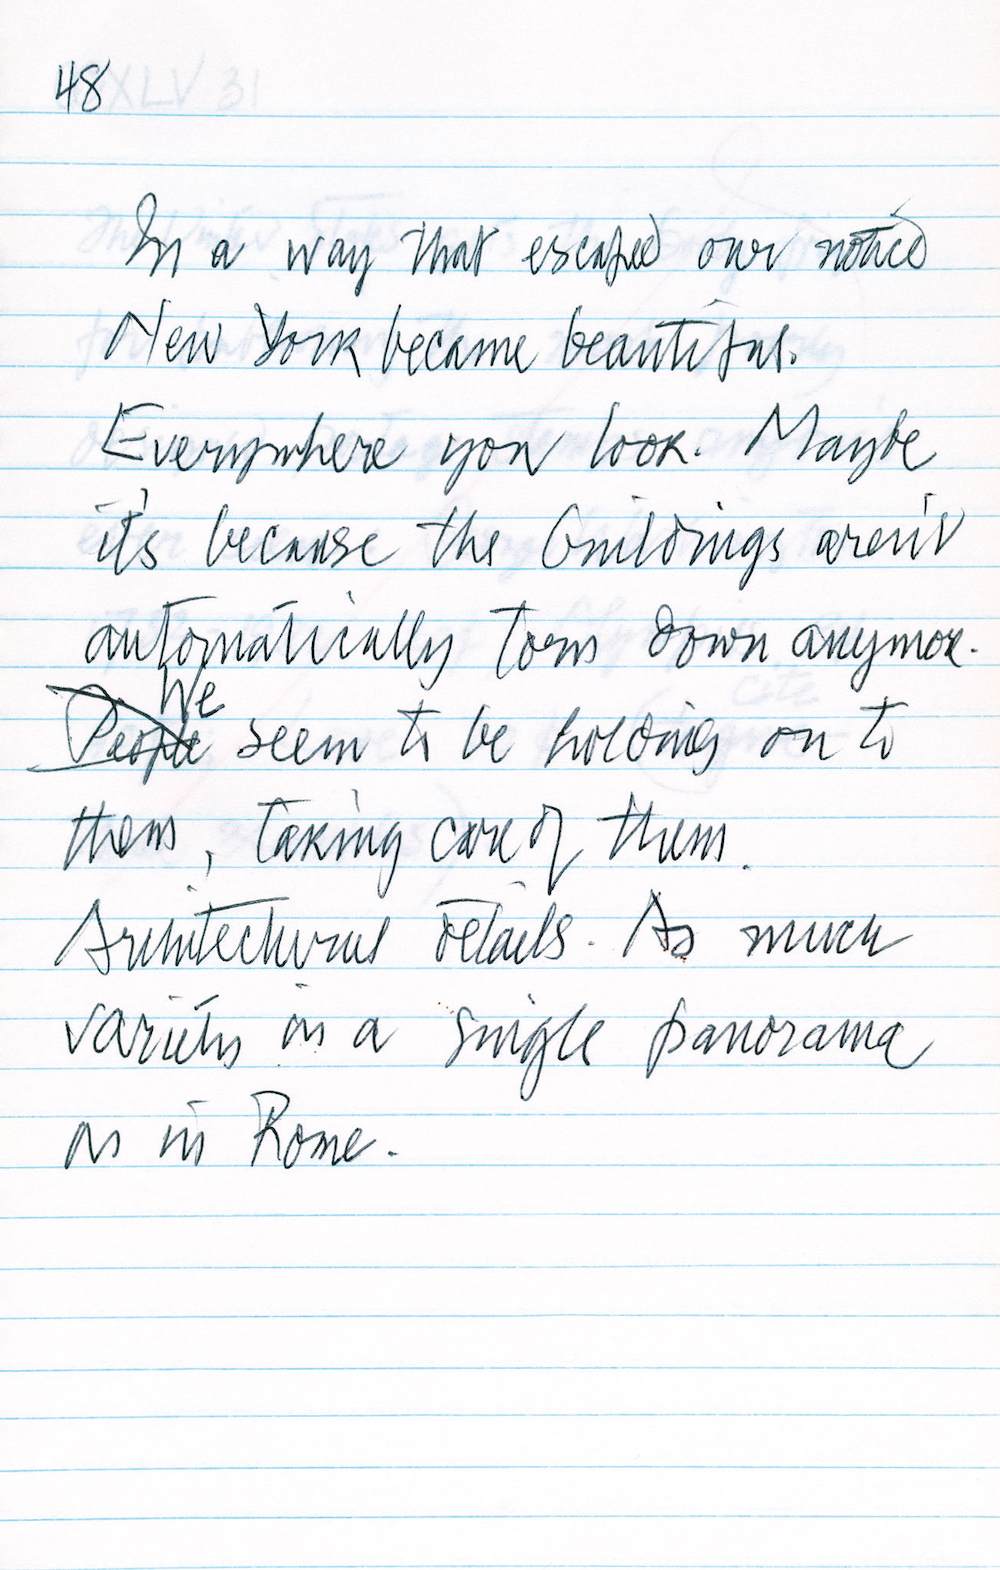 48
In a way that escaped our notice
New York became beautiful.
Everywhere you look. Maybe
it's because the buildings aren't
automatically torn down anymore.
We
People seem to be holding on to
them, taking care of them.
Architectural details. As much
variety in a single panorama
as in Rome.